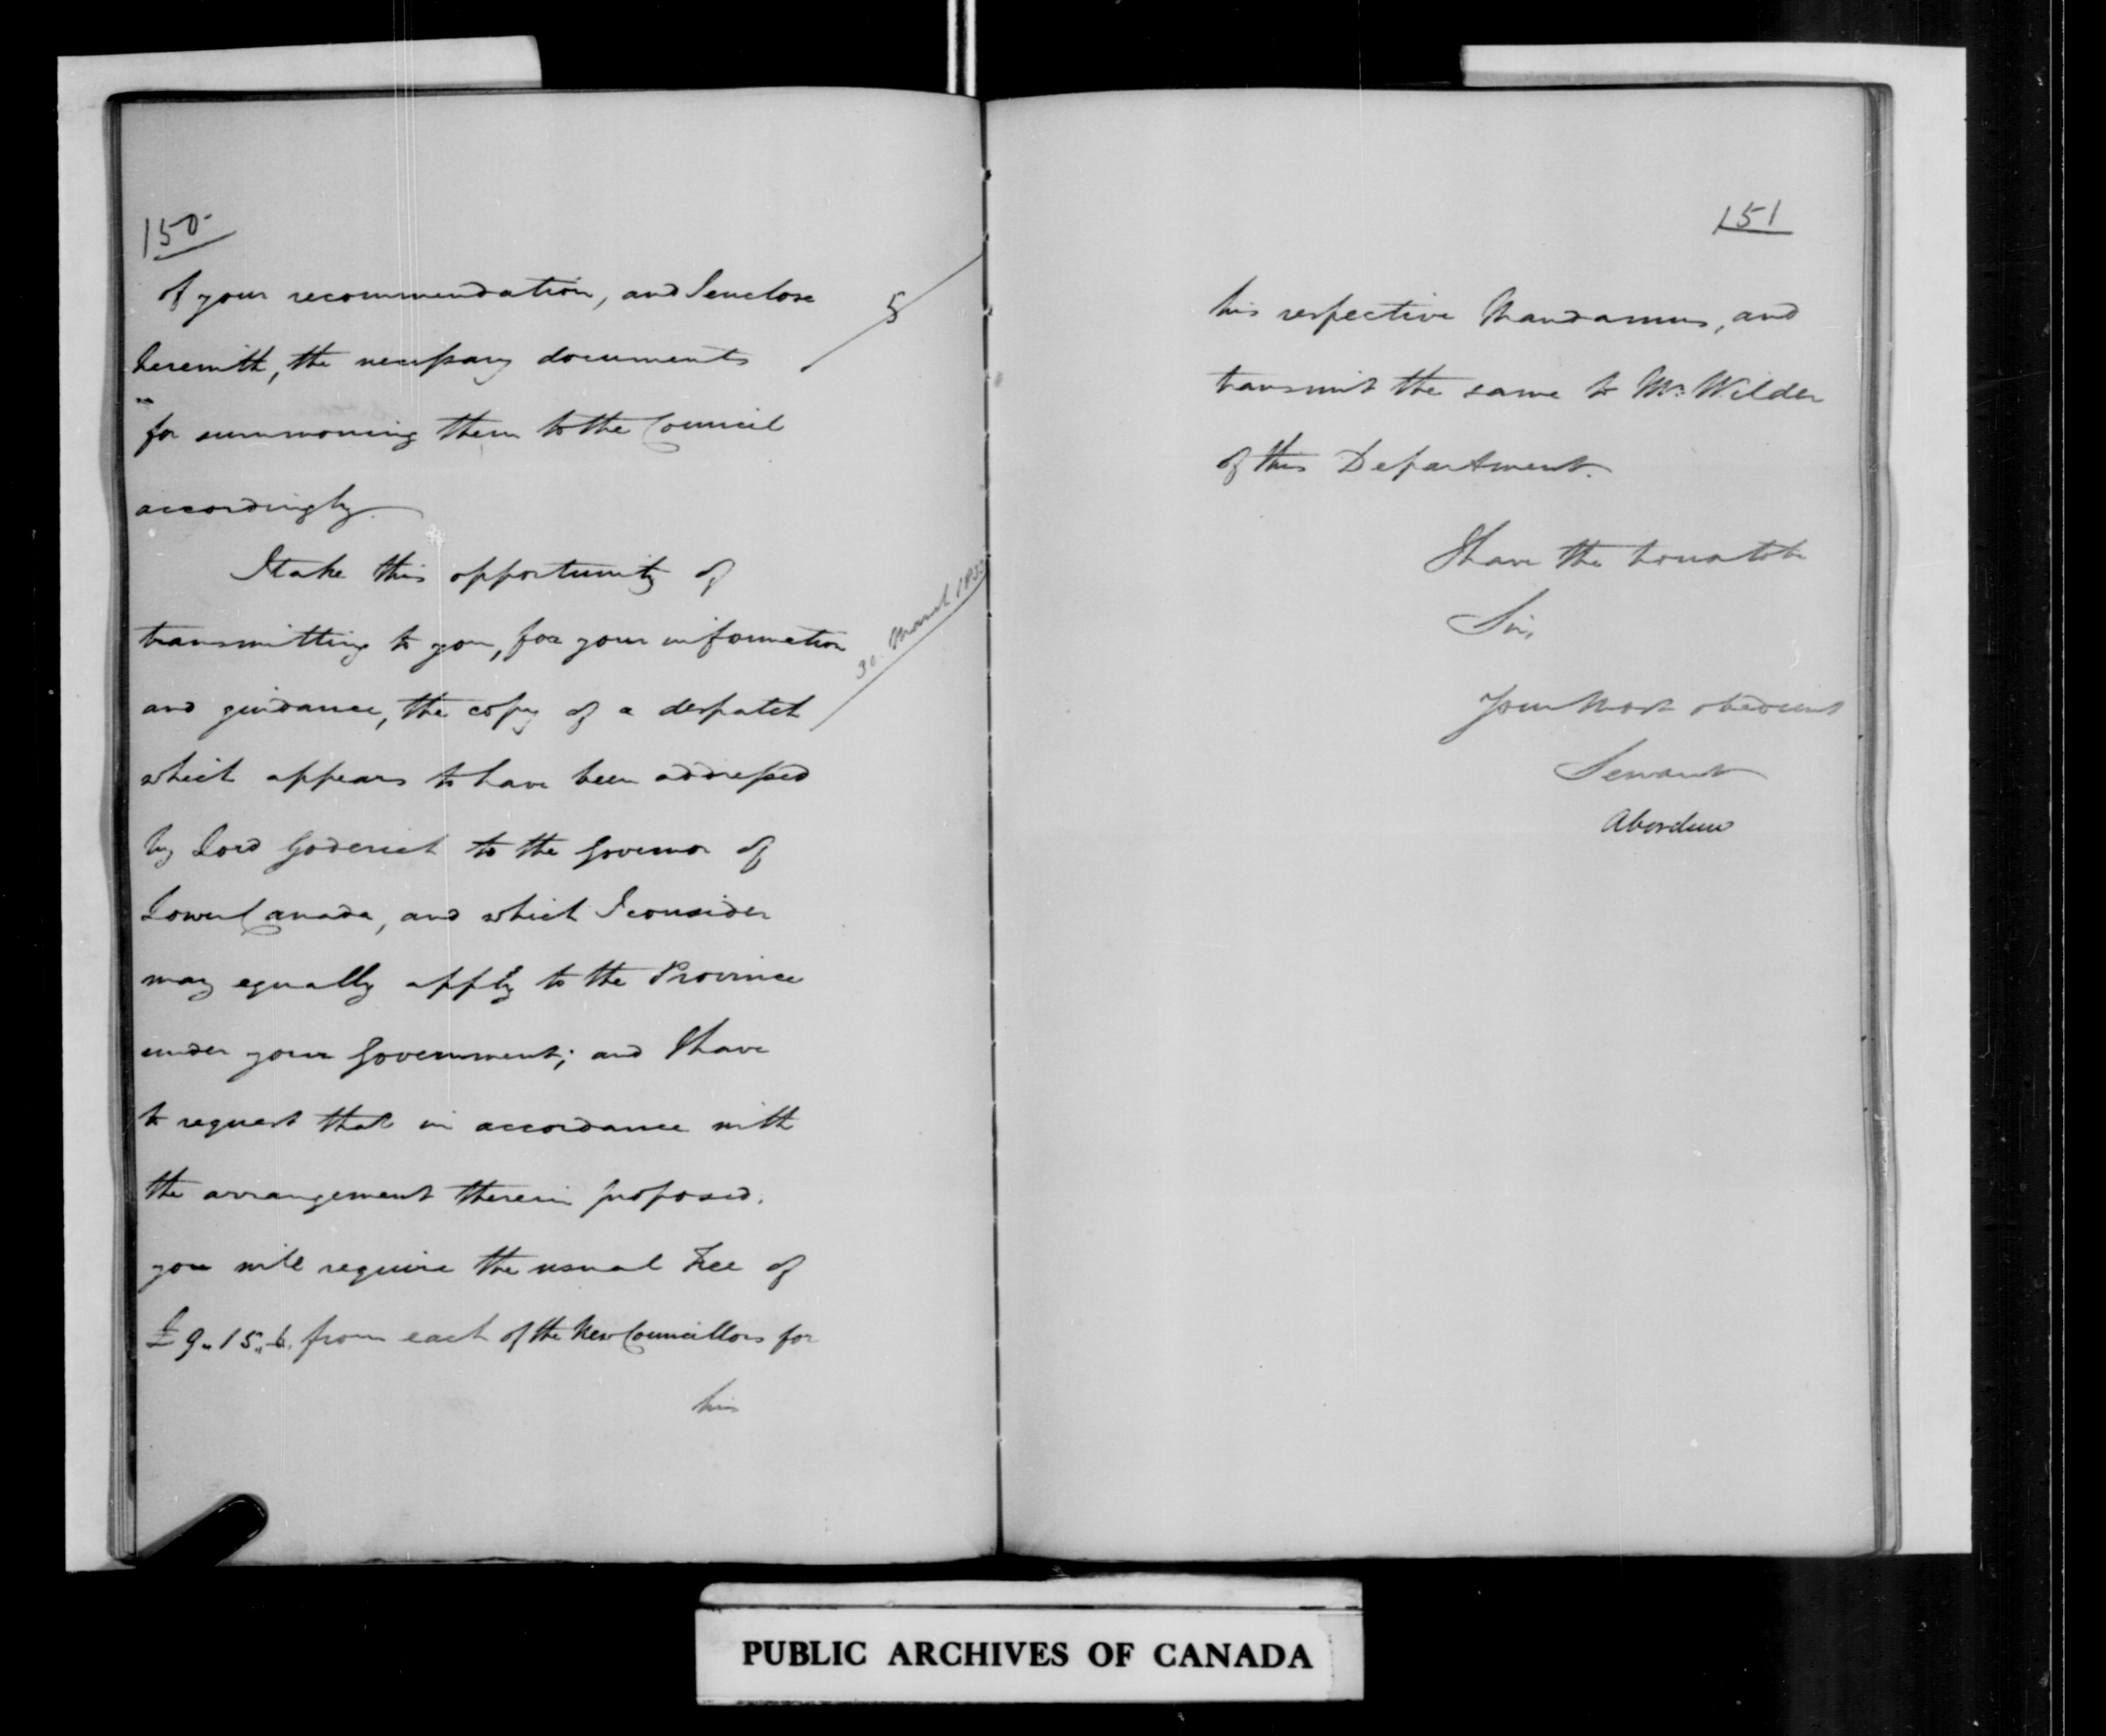 150
of your recommendation, and I enclose
5
herewith, the necessary documents
for summoning them to the Council
accordingly.
I take this opportunity of
transmitting to you, for your information
30. March 1833
and guidance, the copy of a despatch
which appears to have been addressed
by Lord Goderich to the Governor of
Lower Canada, and which I consider
may equally apply to the Province
under your Government; and I have
to request that in accordance with
the arrangement therein proposed.
you will require the usual Fee of
£9.. 15.. 6. from each of the New Councillors for
his
151
his respective Mandamus, and
transmit the same to Mr. Wilder
of this Department.
I have the honor to be
Sir,
Your Most obedient
Servant
Aberdeen
PUBLIC ARCHIVES OF CANADA